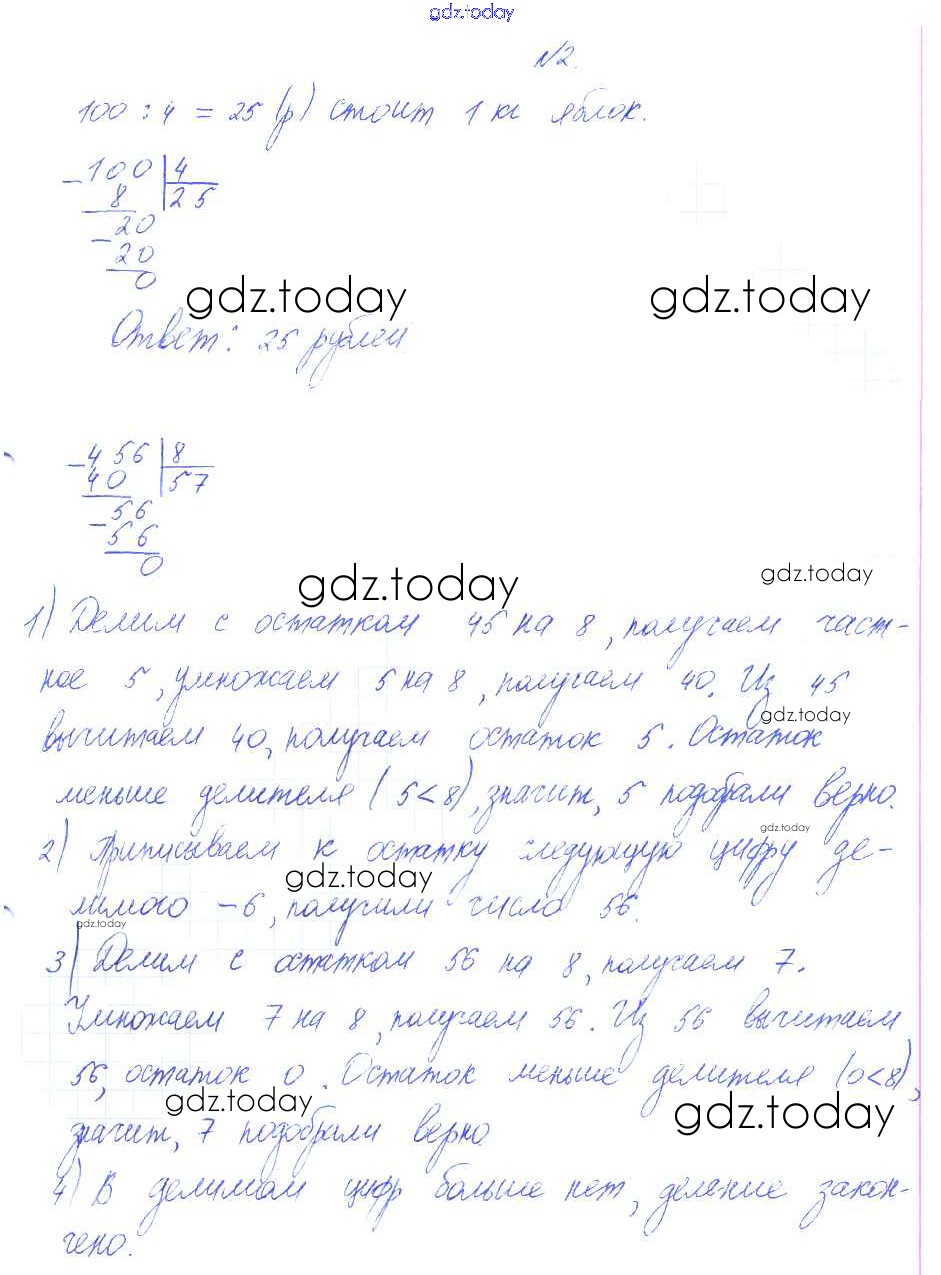 gdz.today
№2.
100 : 4 = 25 (р) стоит 1 кг яблок.
100 4
8 25
20
20
0
gdz.today gdz.today
Ответ: 25 рублей
456 8
40 57
56
56
0
gdz.today gdz.today
1) Делим с остатком 45 на 8, получаем част-
ное 5, умножаем 5 на 8, получаем 40. Из 45
gdz.today
вычитаем 40, получаем остаток 5. Остаток
меньше делителя (5<8), значит, 5 подобрали верно.
gdz.today
2) Приписываем к остатку следующую цифру де-
gdz.today
лимого - 6, получили число 56.
gdz.today
3) Делим с остатком 56 на 8, получаем 7.
Умножаем 7 на 8, получаем 56. Из 56 вычитаем
56, остаток 0. Остаток меньше делителя (0<8),
gdz.today gdz.today
значит, 7 подобрали верно
4) В делимом цифр больше нет, деление закон-
чено.